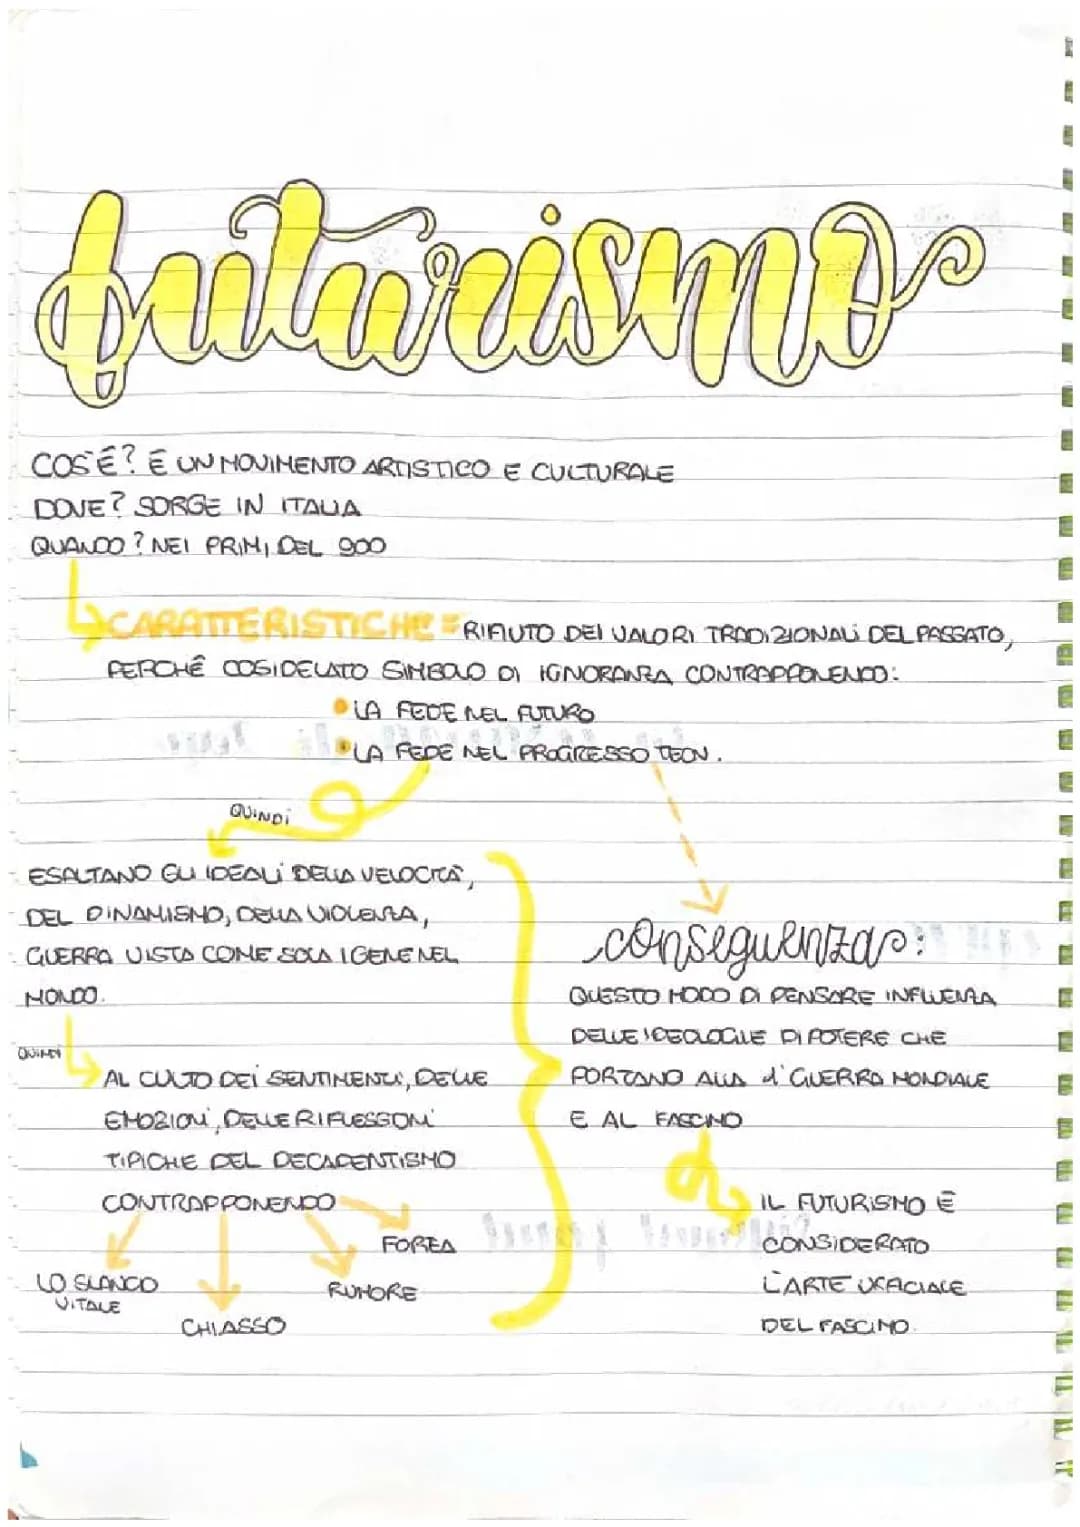 futurismo
COS'É? É UN MOVIMENTO ARTISTICO E CULTURALE
DOVE? SORGE IN ITALIA
QUANDO? NEI PRIMI DEL 900
CARATTERISTICHE = RIFIUTO DEI VALORI TRADIZIONALI DEL PASSATO,
PERCHÉ COSIDELATO SIMBOLO DI IGNORANZA CONTRAPPONENDO:
• LA FEDE NEL FUTURO
• LA FEDE NEL PROGRESSO TECN.
QUINDI
ESALTANO GLI IDEALI DELLA VELOCITÀ,
DEL DINAMISMO, DELLA VIOLENZA,
GUERRA VISTA COME SOLA IGENE NEL
MONDO.
QUINDI
AL CULTO DEI SENTIMENTI, DELLE
EMOZIONI, DELLE RIFLESSIONI
TIPICHE DEL DECADENTISMO
CONTRAPPONENDO
FORZA
LO SLANCIO
VITALE
RUMORE
CHIASSO
conseguenza:
QUESTO MODO DI PENSARE INFLUENZA
DELLE IDEOLOGIE DI POTERE CHE
PORTANO ALLA 1ª GUERRA MONDIALE
E AL FASCINO
IL FUTURISMO É
CONSIDERATO
L'ARTE UFACIALE
DEL FASCINO.